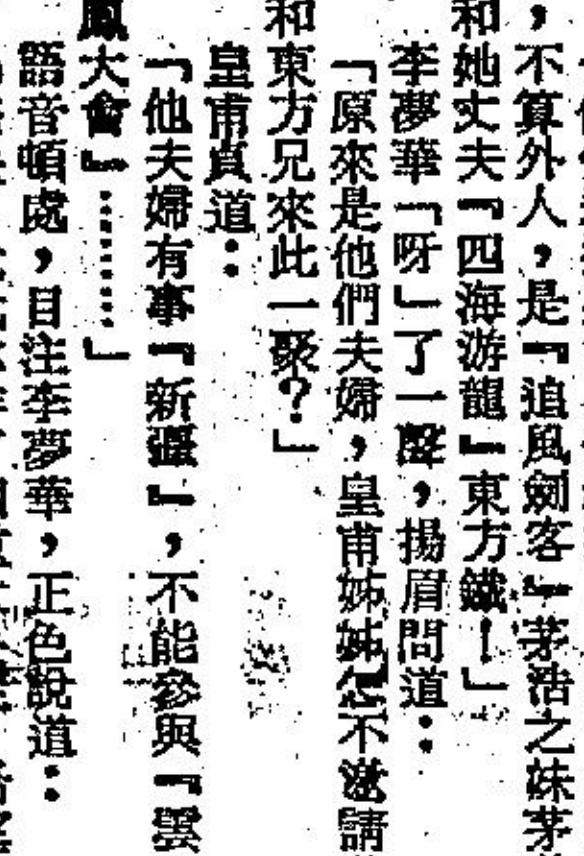 ，不算外人，是『追風劍客』茅浩之妹茅
和她丈夫『四海游龍』東方鐵！」
李夢華「呀」了一聲，揚眉問道：
「原來是他們夫婦，皇甫姊姊怎不邀請
和東方兄來此一聚？」
皇甫貞道：
「他夫婦有事『新疆』，不能參與『雲
鳳大會』………」
語音頓處，目注李夢華，正色說道：